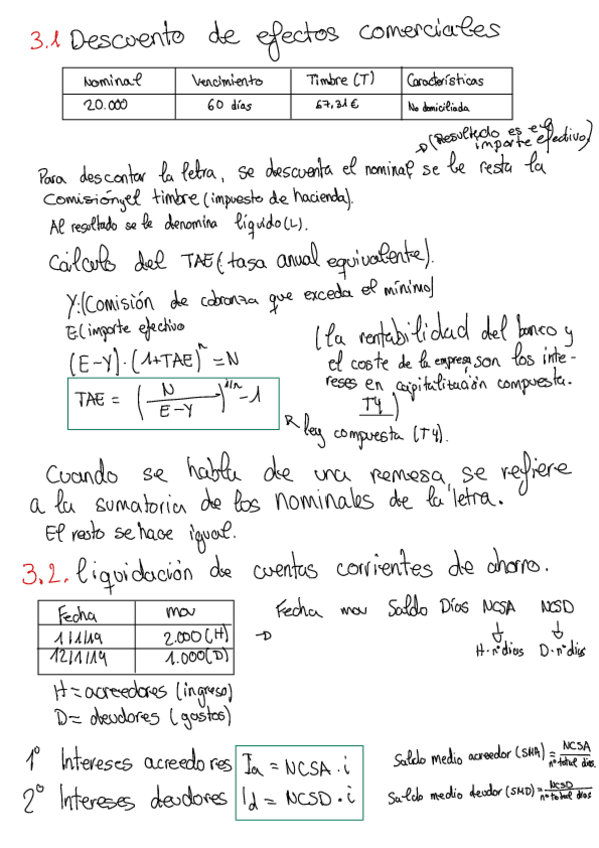 3.1 Descuento de efectos comerciales
Nominal Vencimiento Timbre (T) Características
20.000 60 días 67,31€ No domiciliada
(Resultado es el importe efectivo)
Para descontar la letra, se descuenta el nominal se le resta la
Comisión y el timbre (impuesto de hacienda).
Al resultado se le denomina líquido (L).
Cálculo del TAE (tasa anual equivalente).
Y:(Comisión de cobranza que exceda el mínimo)
E:(importe efectivo
(E-Y)·(1+TAE)^n = N
TAE = (N / E-Y)^1/n - 1
(la rentabilidad del banco y
el coste de la empresa, son los inte-
reses en capitalización compuesta.
T4)
ley compuesta (T4).
Cuando se habla de una remesa, se refiere
a la sumatoria de los nominales de la letra.
El resto se hace igual.
3.2. liquidación de cuentas corrientes de ahorro.
Fecha mov
1/1/19 2.000 (H)
12/1/19 1.000 (D)
Fecha mov Saldo Días NCSA NCSD
H·nº días D·nº días
H = acreedores (ingreso)
D = deudores (gastos)
1º Intereses acreedores Ia = NCSA · i
Saldo medio acreedor (SMA) = NCSA / nº total días.
2º Intereses deudores Id = NCSD · i
Saldo medio deudor (SMD) = NCSD / nº total días